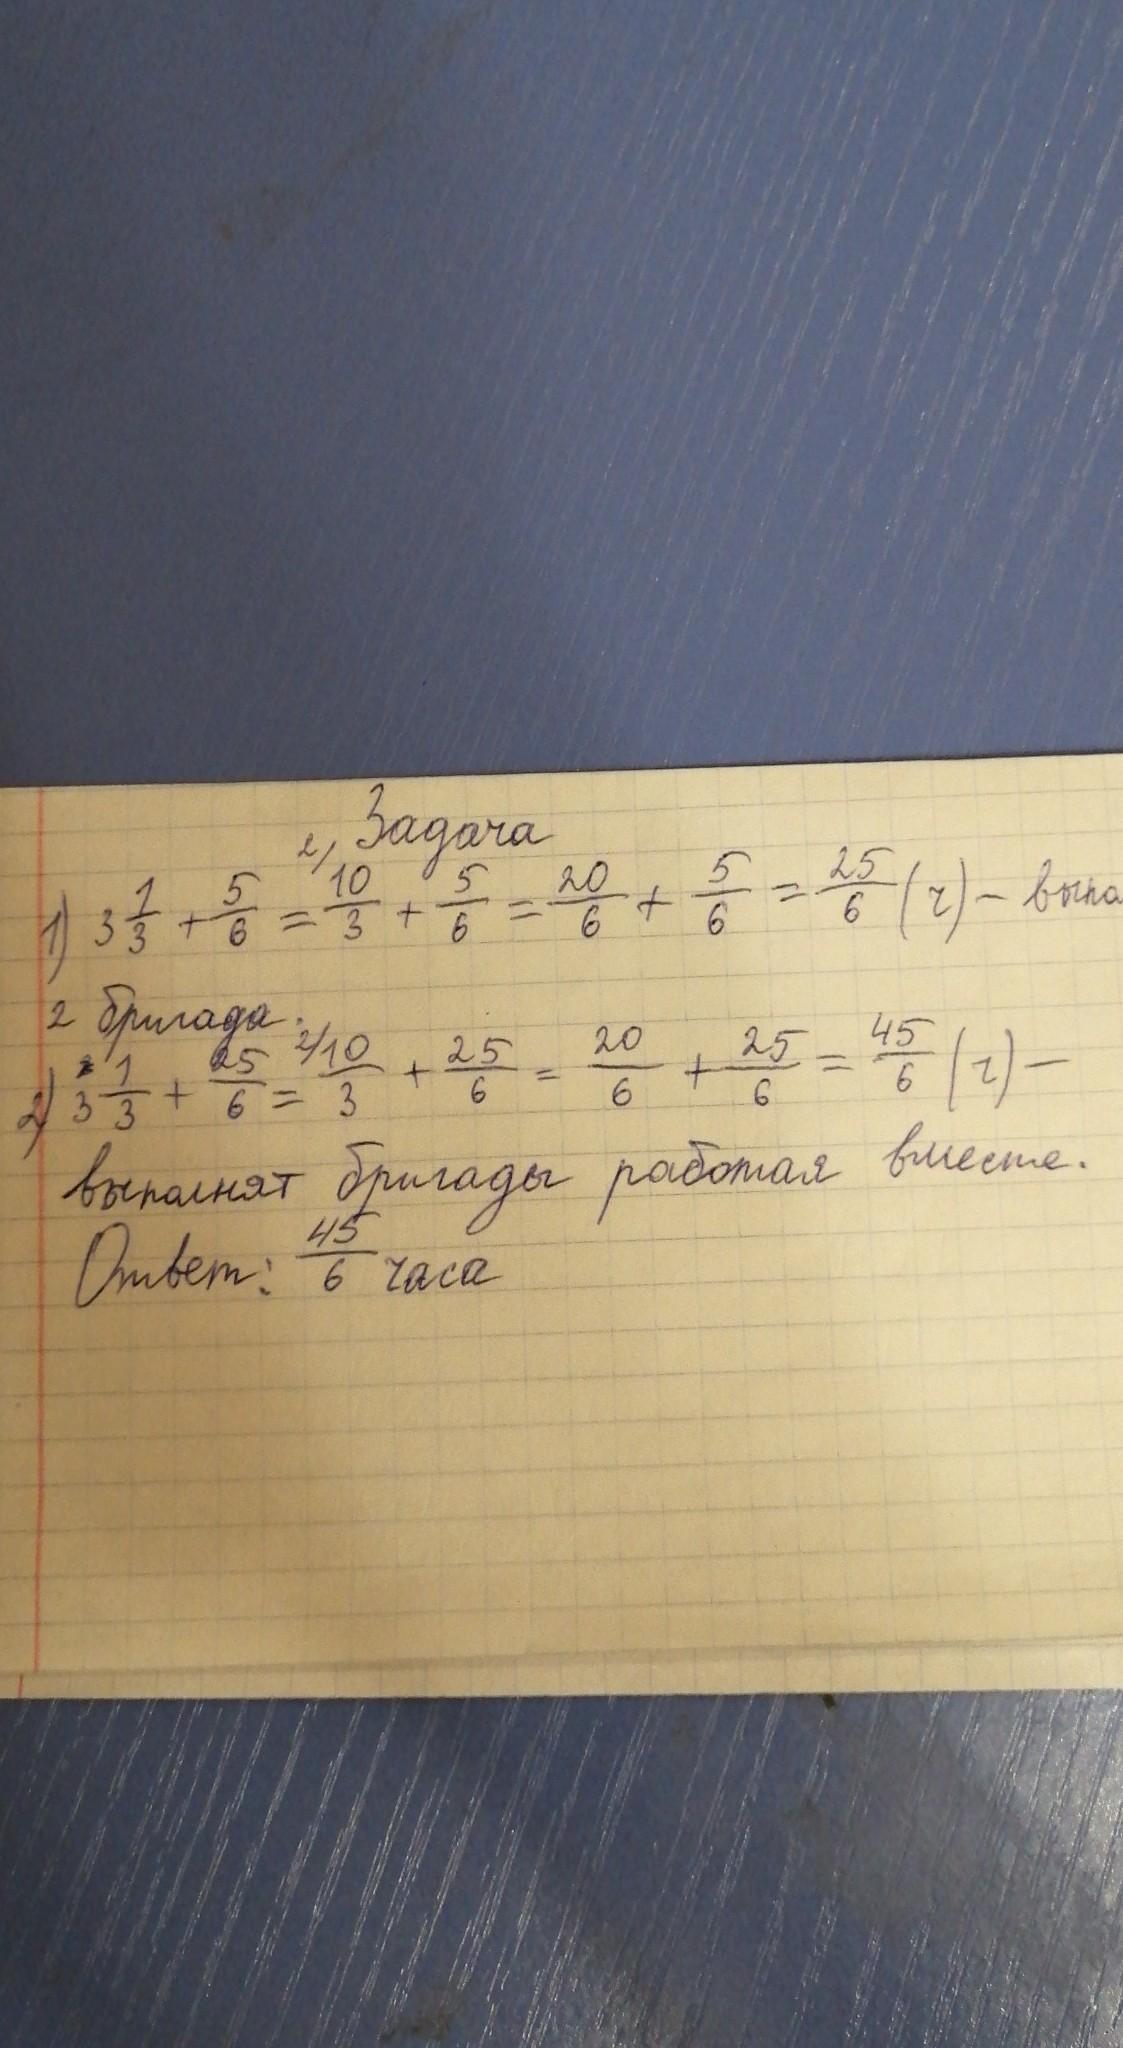 Задача
1) 3 1/3 + 5/6 = 2/ 10/3 + 5/6 = 20/6 + 5/6 = 25/6 (ч) –
2 бригада.
2) 3 1/3 + 25/6 = 2/ 10/3 + 25/6 = 20/6 + 25/6 = 45/6 (ч) –
выполнят бригады работая вместе.
Ответ: 45/6 часа